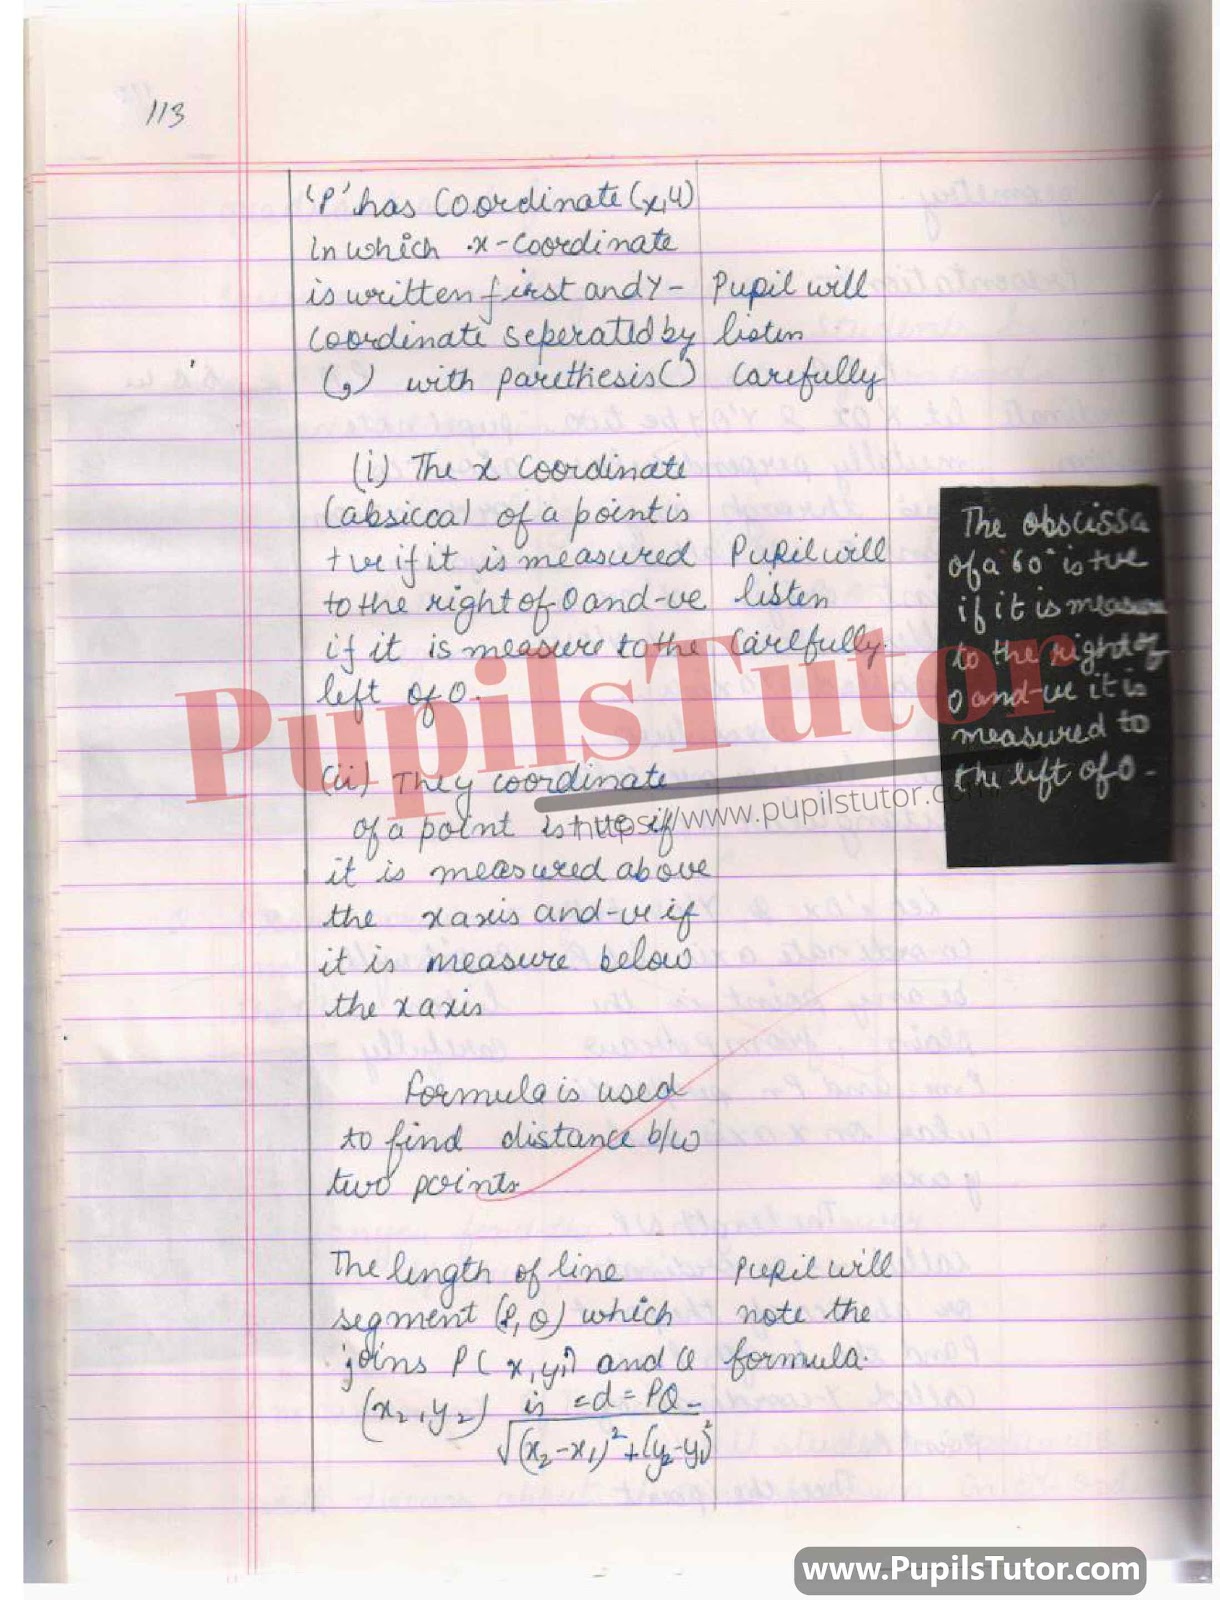 113
'P' has Coordinate (x,4)
in which x-coordinate
is written first and Y-
Coordinate seperated by
(,) with parethesis ()
Pupil will
listen
carefully
(i) The x Coordinate
(absicca) of a point is
+ve if it is measured
to the right of 0 and -ve
if it is measure to the
left of 0.
Pupil will
listen
Carelfully.
The obscissa
of a 60° is +ve
if it is measure
to the right of
0 and -ve it is
measured to
the left of 0-
(ii) The y coordinate
of a point is +ve if
it is measured above
the x axis and -ve if
it is measure below
the x axis
Formula is used
to find distance b/w
two points
The length of line
segment (P, Q) which
joins P( x, y,) and Q
(x₂, y₂) is =d=PQ-
√(x₂-x₁)²+(y₂-y₁)²
Pupil will
note the
formula.
PupilsTutor
https://www.pupilstutor.com
www.PupilsTutor.com